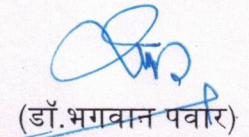 (डॉ.भगवान पवार)